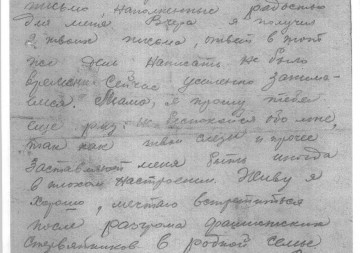 письмо наполненные радостью
для меня. Вчера я получил
2 твоих письма, ответ в тот
же день написать не было
времени. Сейчас усиленно занима-
емся. Мама, я прошу тебя
еще раз: не беспокойся обо мне,
так как твои слезы и прочее
заставляют меня быть иногда
в плохом настроении. Живу я
хорошо, мечтаю встретиться
после разгрома фашистских
стервятников в родной семье